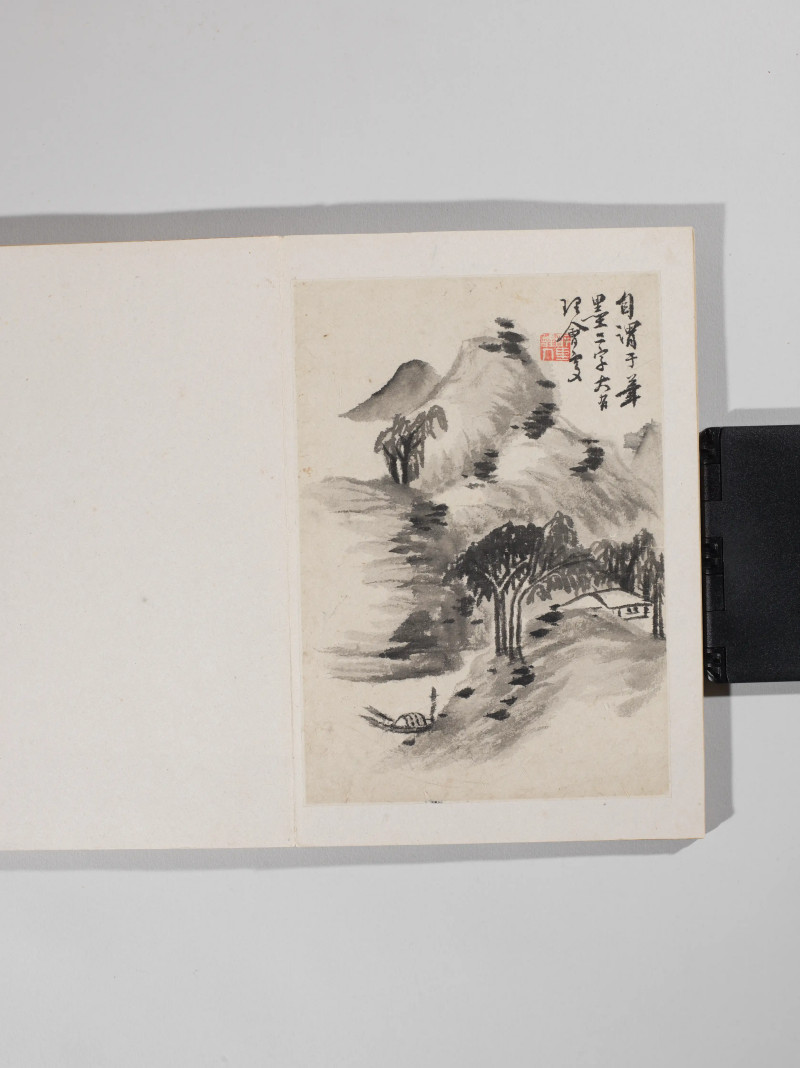 自謂于筆
墨二字大有
理會 夋